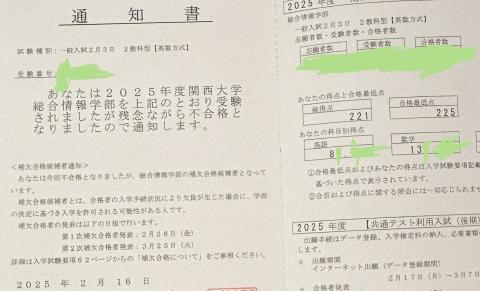 通知書
試験種別：一般入試2月3日 2教科型【英数方式】
受験番号：
あなたは2025年度関西大学
総合情報学部を上記のとおり受験
されましたが残念ながら不合格と
なりましたので通知します。
＜補欠合格候補者通知＞
あなたは今回不合格となりましたが、総合情報学部の補欠合格候補者となって
います。
補欠合格候補者とは、合格者の入学手続状況により欠員が生じた場合に、学部
の決定に基づき入学を許可される可能性がある人です。
補欠合格候補者の発表は以下の日程で行います。
第1次補欠合格者発表：2月28日（金）
第2次補欠合格者発表：3月25日（火）
詳細は入学試験要項62ページからの「補欠合格について」をご参照ください。
2025年 2月 16日
2025年度
総合情報学部
一般入試2月3日 2教科型【英数方式】
志願者数・受験者数・合格者数
志願者数 受験者数 合格者数
あなたの得点と合格最低点
総得点 合格最低点
221 225
あなたの科目別得点
英語 数学
8 13
①合格最低点およびあなたの得点は入学試験要項記載
基づいた得点で表示されています。
②合否および得点に関する照会には一切応じられま
2025年度 【共通テスト利用入試（後期）
出願手続はデータ登録、入学検定料の納入、必要書類
○ 出願期間
インターネット出願（データ登録）
2月17日（月）～3月7
○ 合格者発表